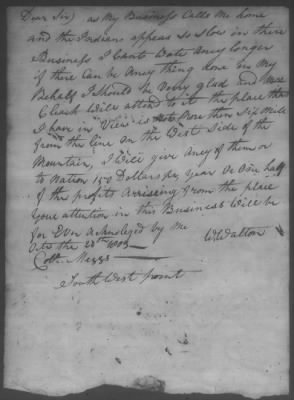 Dear Sir) as My Business Calls Me home
and the Indians appear so slow in there
Business I Cant Wate aney longer
if there Can be aney thing done in My
Behalf I Should be Verry glad and Mr
Clack Will attend to it the place that
I have in View is Not More then Six Mile
from the line on the West Side of the
Mountain, I Will give aney of them or
to Nation 150 Dollars per year or One half
of the profits arrissing from the place
your attention in this Business Will be
for Ever acknoleged by Me
Octo the 28th 1803 W Walton
Coll. Meigs
South West point